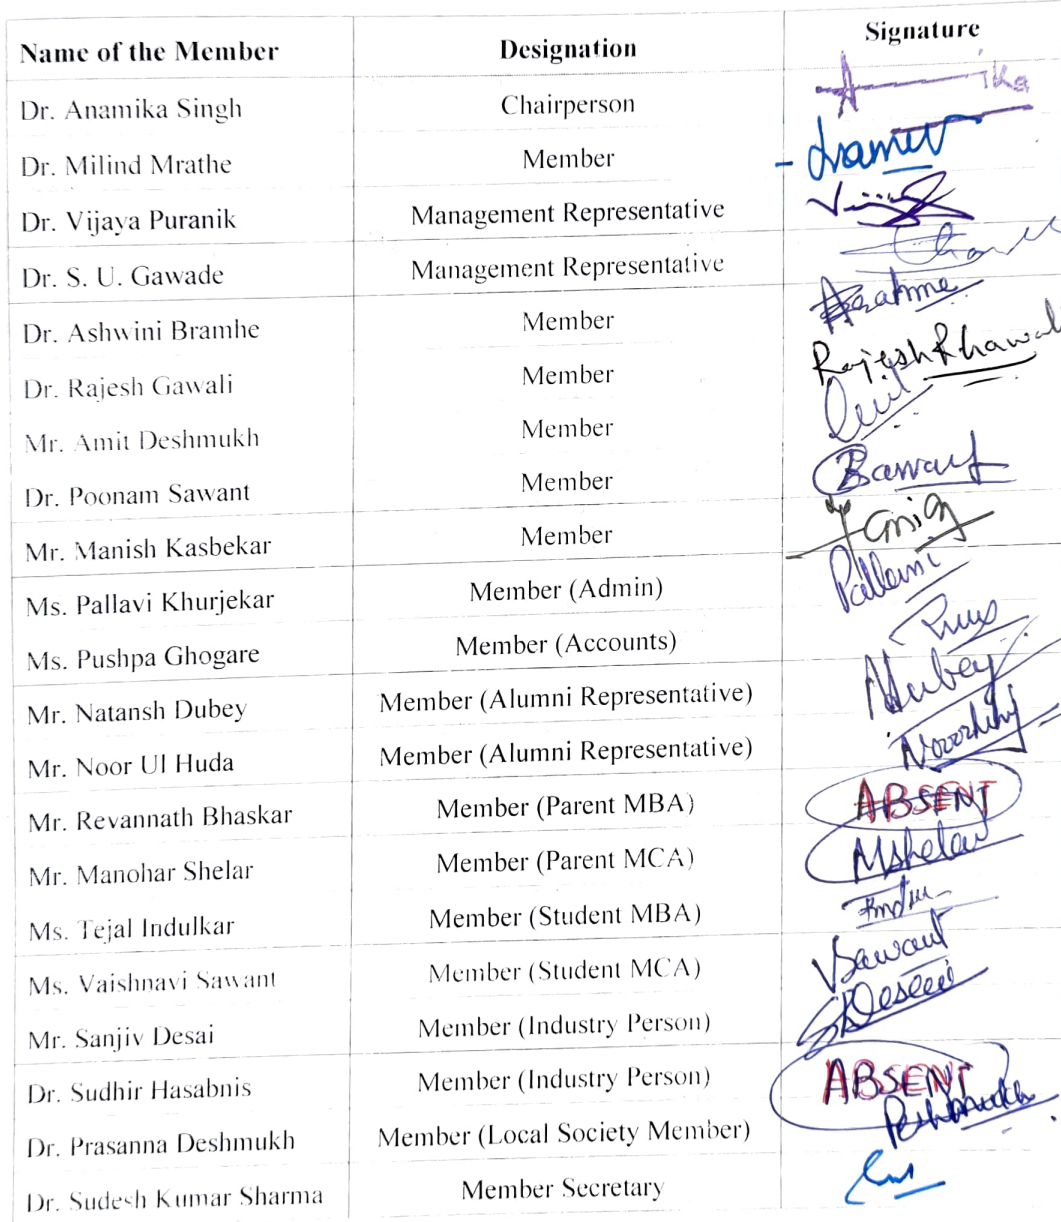 Name of the Member Designation Signature
Dr. Anamika Singh Chairperson
Dr. Milind Mrathe Member
Dr. Vijaya Puranik Management Representative
Dr. S. U. Gawade Management Representative
Dr. Ashwini Bramhe Member
Dr. Rajesh Gawali Member Rajesh
Mr. Amit Deshmukh Member
Dr. Poonam Sawant Member
Mr. Manish Kasbekar Member
Ms. Pallavi Khurjekar Member (Admin) Pallavi
Ms. Pushpa Ghogare Member (Accounts)
Mr. Natansh Dubey Member (Alumni Representative) NDubey
Mr. Noor Ul Huda Member (Alumni Representative)
Mr. Revannath Bhaskar Member (Parent MBA) ABSENT
Mr. Manohar Shelar Member (Parent MCA) MShelar
Ms. Tejal Indulkar Member (Student MBA)
Ms. Vaishnavi Sawant Member (Student MCA) VSawant
Mr. Sanjiv Desai Member (Industry Person)
Dr. Sudhir Hasabnis Member (Industry Person) ABSENT
Dr. Prasanna Deshmukh Member (Local Society Member) PDeshmukh
Dr. Sudesh Kumar Sharma Member Secretary